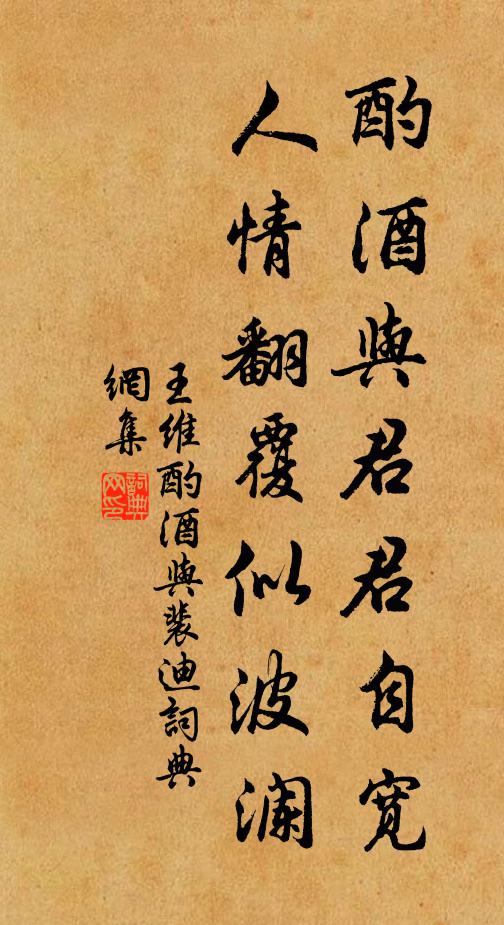 酌酒與君君自寬
人情翻覆似波瀾
王維酌酒與裴迪詞典
網集
詞典
网印